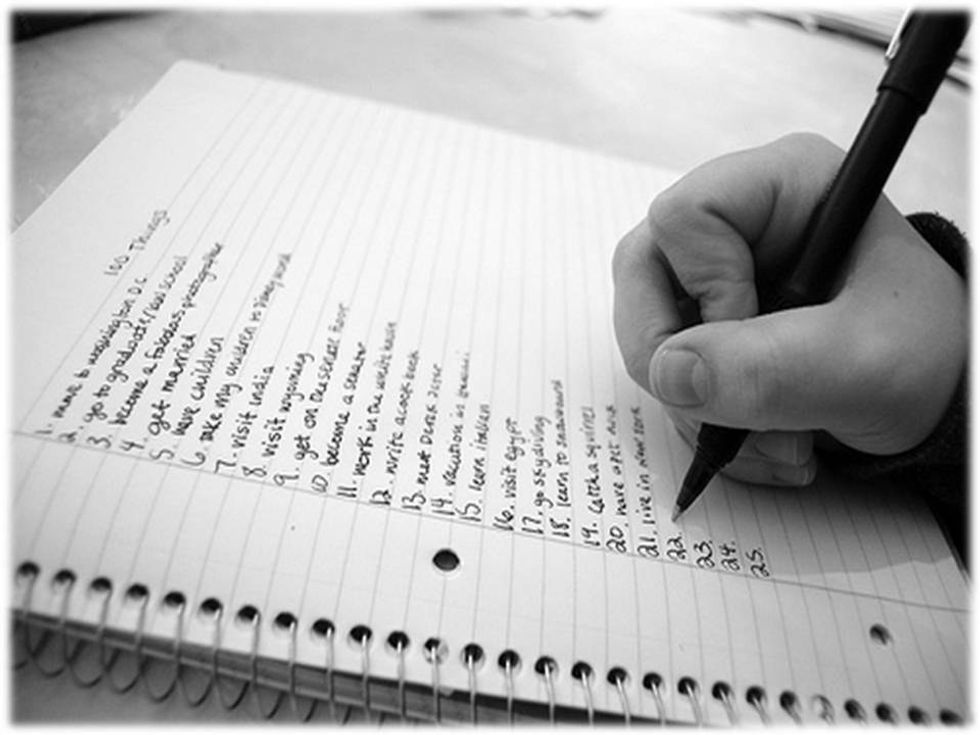 100 Things
1. move to washington D.C.
2. go to graduate/law school
3. become a fabulous photographer
4. get married
5. have children
6. take my children to Disney world
7. visit india
8. visit wyoming
9. get on the senate floor
10. become a senator
11. work in the white house
12. write a cook book
13. meet Derek Jeter
14. vacation in
15. learn italian
16. visit egypt
17. go skydiving
18. learn to
19. catch a squirrel
20. have a pet
21. live in new york
22.
23.
24.
25.